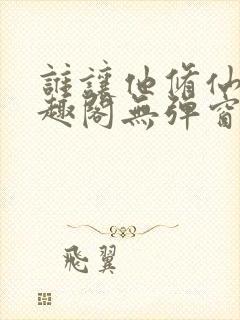 誰讓他脩仙
趣閣無彈窗
飛翼